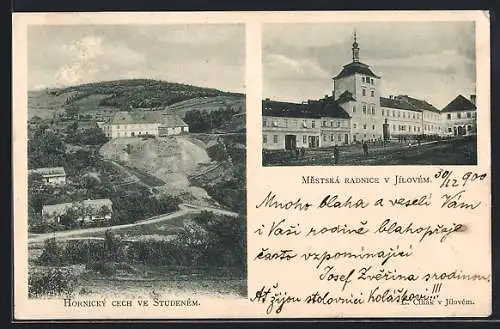 Městská radnice v Jílovém.
30/12 900
Mnoho blaha a veselí Vám
i Vaší rodině blahopřeje
často vzpomínající
Josef Zvěřina s rodinou.
Ať žijou stolovníci holáčkovi!!!
Hornický cech ve Studeném.
v Jílovém.